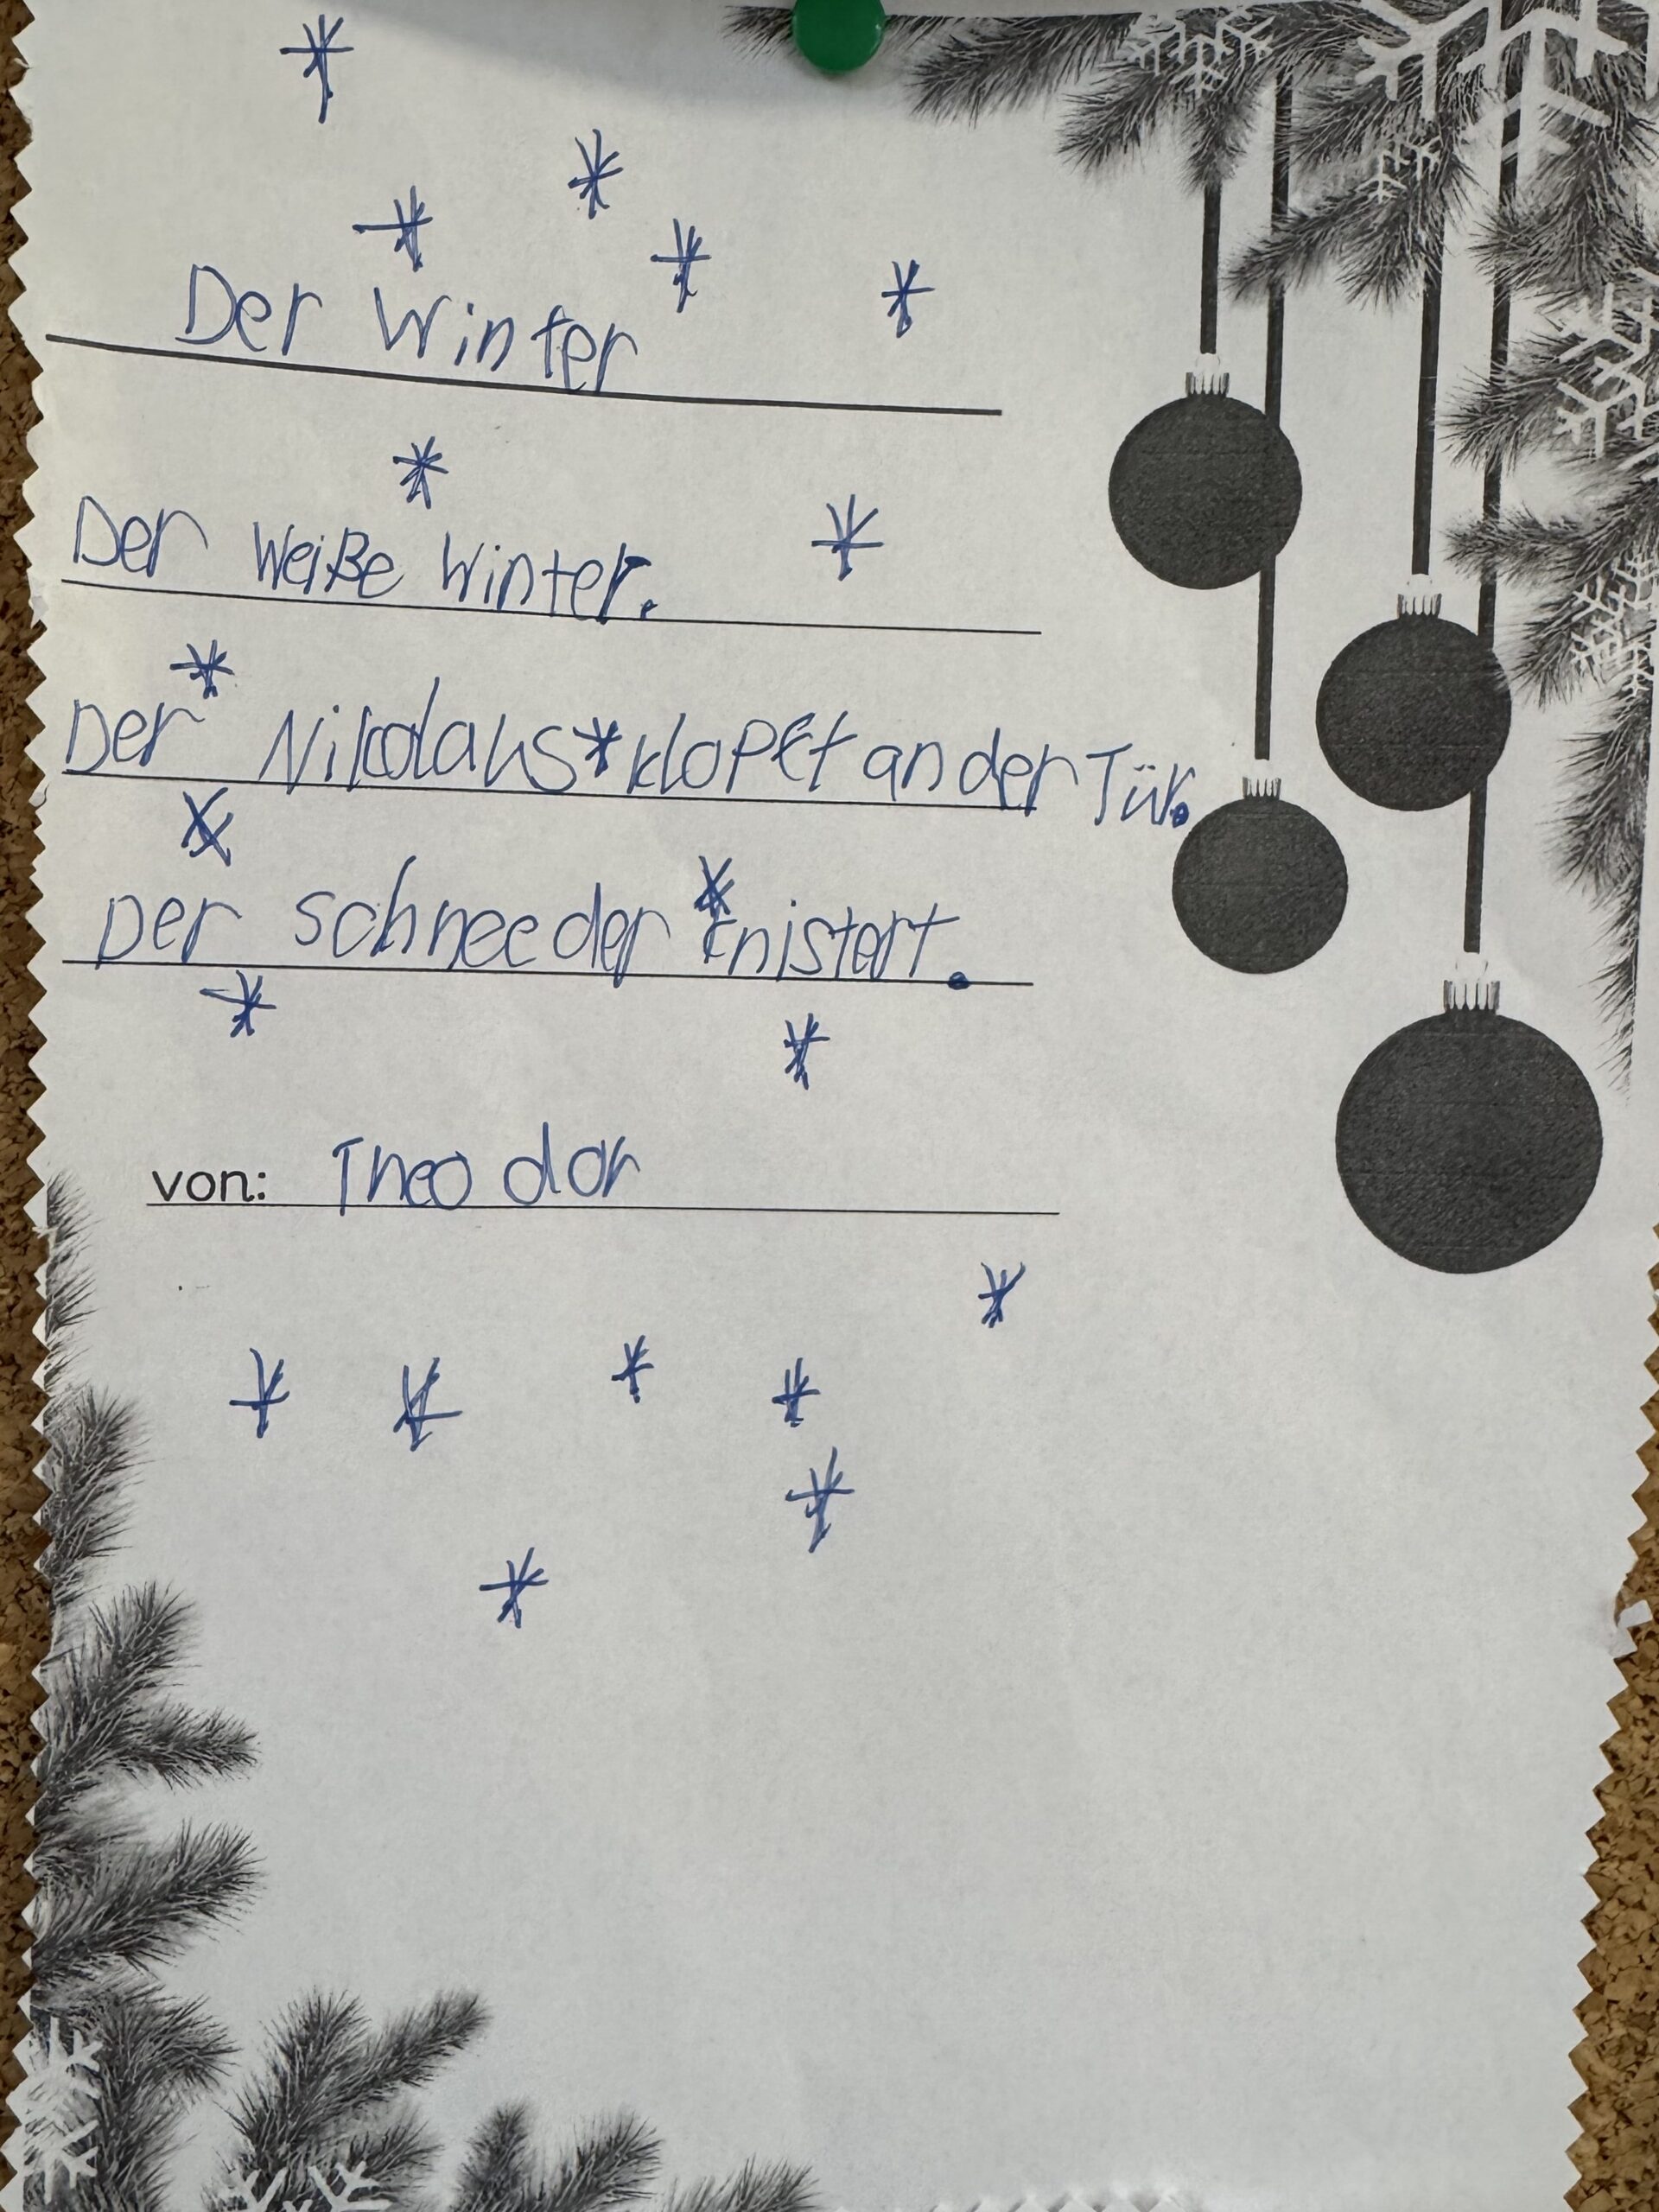 Der Winter
Der Weiße Winter.
Der Nikolaus klopft an der Tür.
Der schnee der knistert.
von: Theodor